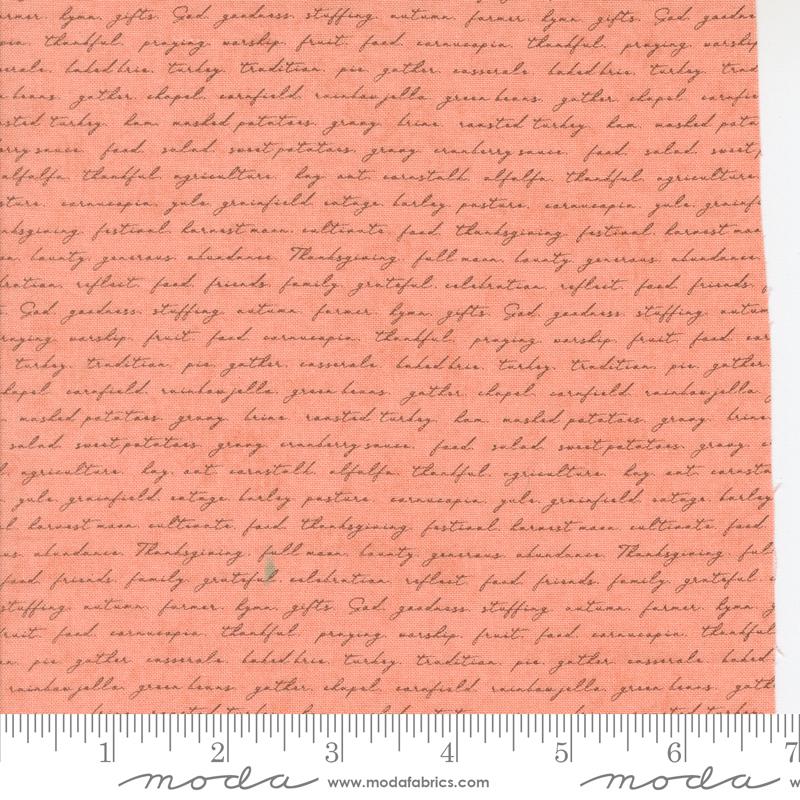 farmer. hymn. gifts. God. goodness. stuffing. autumn. farmer. hymn. gifts. God. goodne
thankful. praying. worship. fruit. food. cornucopia. thankful. praying. worship
baked brie. turkey. tradition. pie. gather. casserole. baked brie. turkey. trad
beans. gather. chapel. cornfield. rainbow jello. green beans. gather. chapel. cornfie
sted turkey. ham. mashed potatoes. gravy. brine. roasted turkey. ham. mashed pota
rry sauce. food. salad. sweet potatoes. gravy. cranberry sauce. food. salad. sweet p
alfalfa. thankful. agriculture. hay. oat. cornstalk. alfalfa. thankful. agriculture.
sture. cornucopia. yule. grainfield. cottage. barley. pasture. cornucopia. yule. grainf
nksgiving. festival. harvest moon. cultivate. food. thanksgiving. festival. harvest moo
on. bounty. generous. abundance. Thanksgiving. full moon. bounty. generous. abundance.
bration. reflect. food. friends. family. grateful. celebration. reflect. food. friends. f
God. goodness. stuffing. autumn. farmer. hymn. gifts. God. goodness. stuffing. autum
raying. worship. fruit. food. cornucopia. thankful. praying. worship. fruit. food. cor
turkey. tradition. pie. gather. casserole. baked brie. turkey. tradition. pie. gather.
chapel. cornfield. rainbow jello. green beans. gather. chapel. cornfield. rainbow jello.
mashed potatoes. gravy. brine. roasted turkey. ham. mashed potatoes. gravy. brine.
salad. sweet potatoes. gravy. cranberry sauce. food. salad. sweet potatoes. gravy. c
l. agriculture. hay. oat. cornstalk. alfalfa. thankful. agriculture. hay. oat. cornsta
yule. grainfield. cottage. barley. pasture. cornucopia. yule. grainfield. cottage. barley
l. harvest moon. cultivate. food. thanksgiving. festival. harvest moon. cultivate. food
us. abundance. Thanksgiving. full moon. bounty. generous. abundance. Thanksgiving. full
food. friends. family. grateful. celebration. reflect. food. friends. family. grateful. c
stuffing. autumn. farmer. hymn. gifts. God. goodness. stuffing. autumn. farmer. hymn. g
fruit. food. cornucopia. thankful. praying. worship. fruit. food. cornucopia. thankful
n. pie. gather. casserole. baked brie. turkey. tradition. pie. gather. casserole. baked
rainbow jello. green beans. gather. chapel. cornfield. rainbow jello. green beans. gath
1 2 3 4 5 6 7
moda www.modafabrics.com moda w